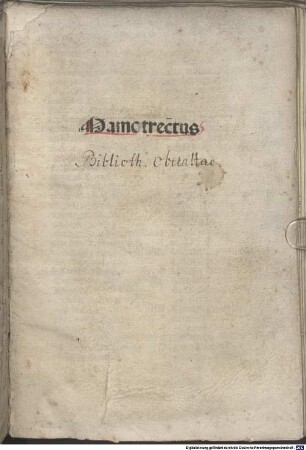 Mamotrectus
Biblioth. Oberaltac.
Digitalisierung gefördert durch die Deutsche Forschungsgemeinschaft